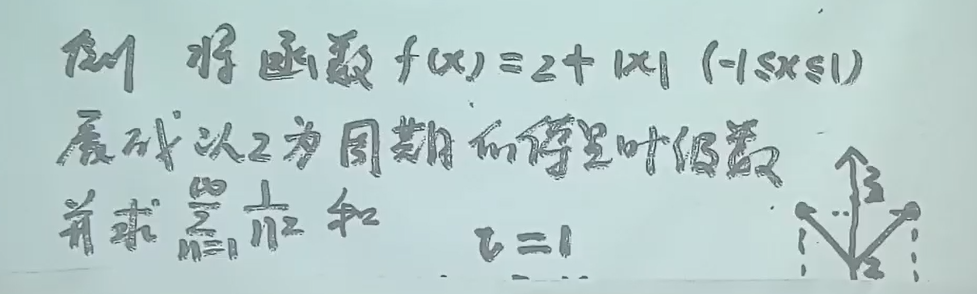 例 将函数 f(x)=2+|x| (-1≤x≤1)
展成以2为周期的傅里叶级数
并求 ∑_{n=1}^{∞} 1/n² 和
τ=1
3
2